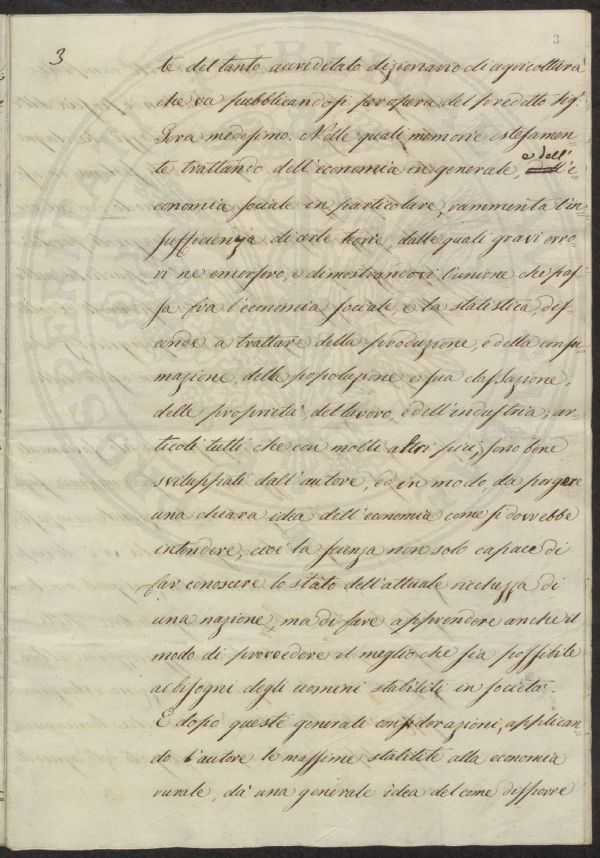 3
3
te del tanto accreditato dizionario di agricoltura
che va pubblicandosi per opera del predetto Sig.
Gera medesimo. Nelle quali memorie estesamen-
te trattando dell'economia in generale, e dell'e-
conomia sociale in particolare, rammenta l'in-
sufficienza di certe teorie dalle quali gravi erro-
ri ne emersero, e dimostrandovi l'unione che pas-
sa fra l'economia sociale, e la statistica, dis-
cende a trattare della produzione, e della consu-
mazione, della popolazione e sua classazione,
delle proprietà, del lavoro, e dell'industria; ar-
ticoli tutti che con molti altri piri, sono bene
sviluppati dall'autore, ed in modo, da porgere
una chiara idea dell'economia come si dovrebbe
intendere, cioè la scienza non solo capace di
far conoscere lo stato dell'attuale ricchezza di
una nazione, ma di fare apprendere anche il
modo di provvedere il meglio che sia possibile
ai bisogni degli uomini stabiliti in società.
E dopo queste generali considerazioni, applican-
do l'autore le massime stabilite alla economia
rurale, dà una generale idea del come disporre